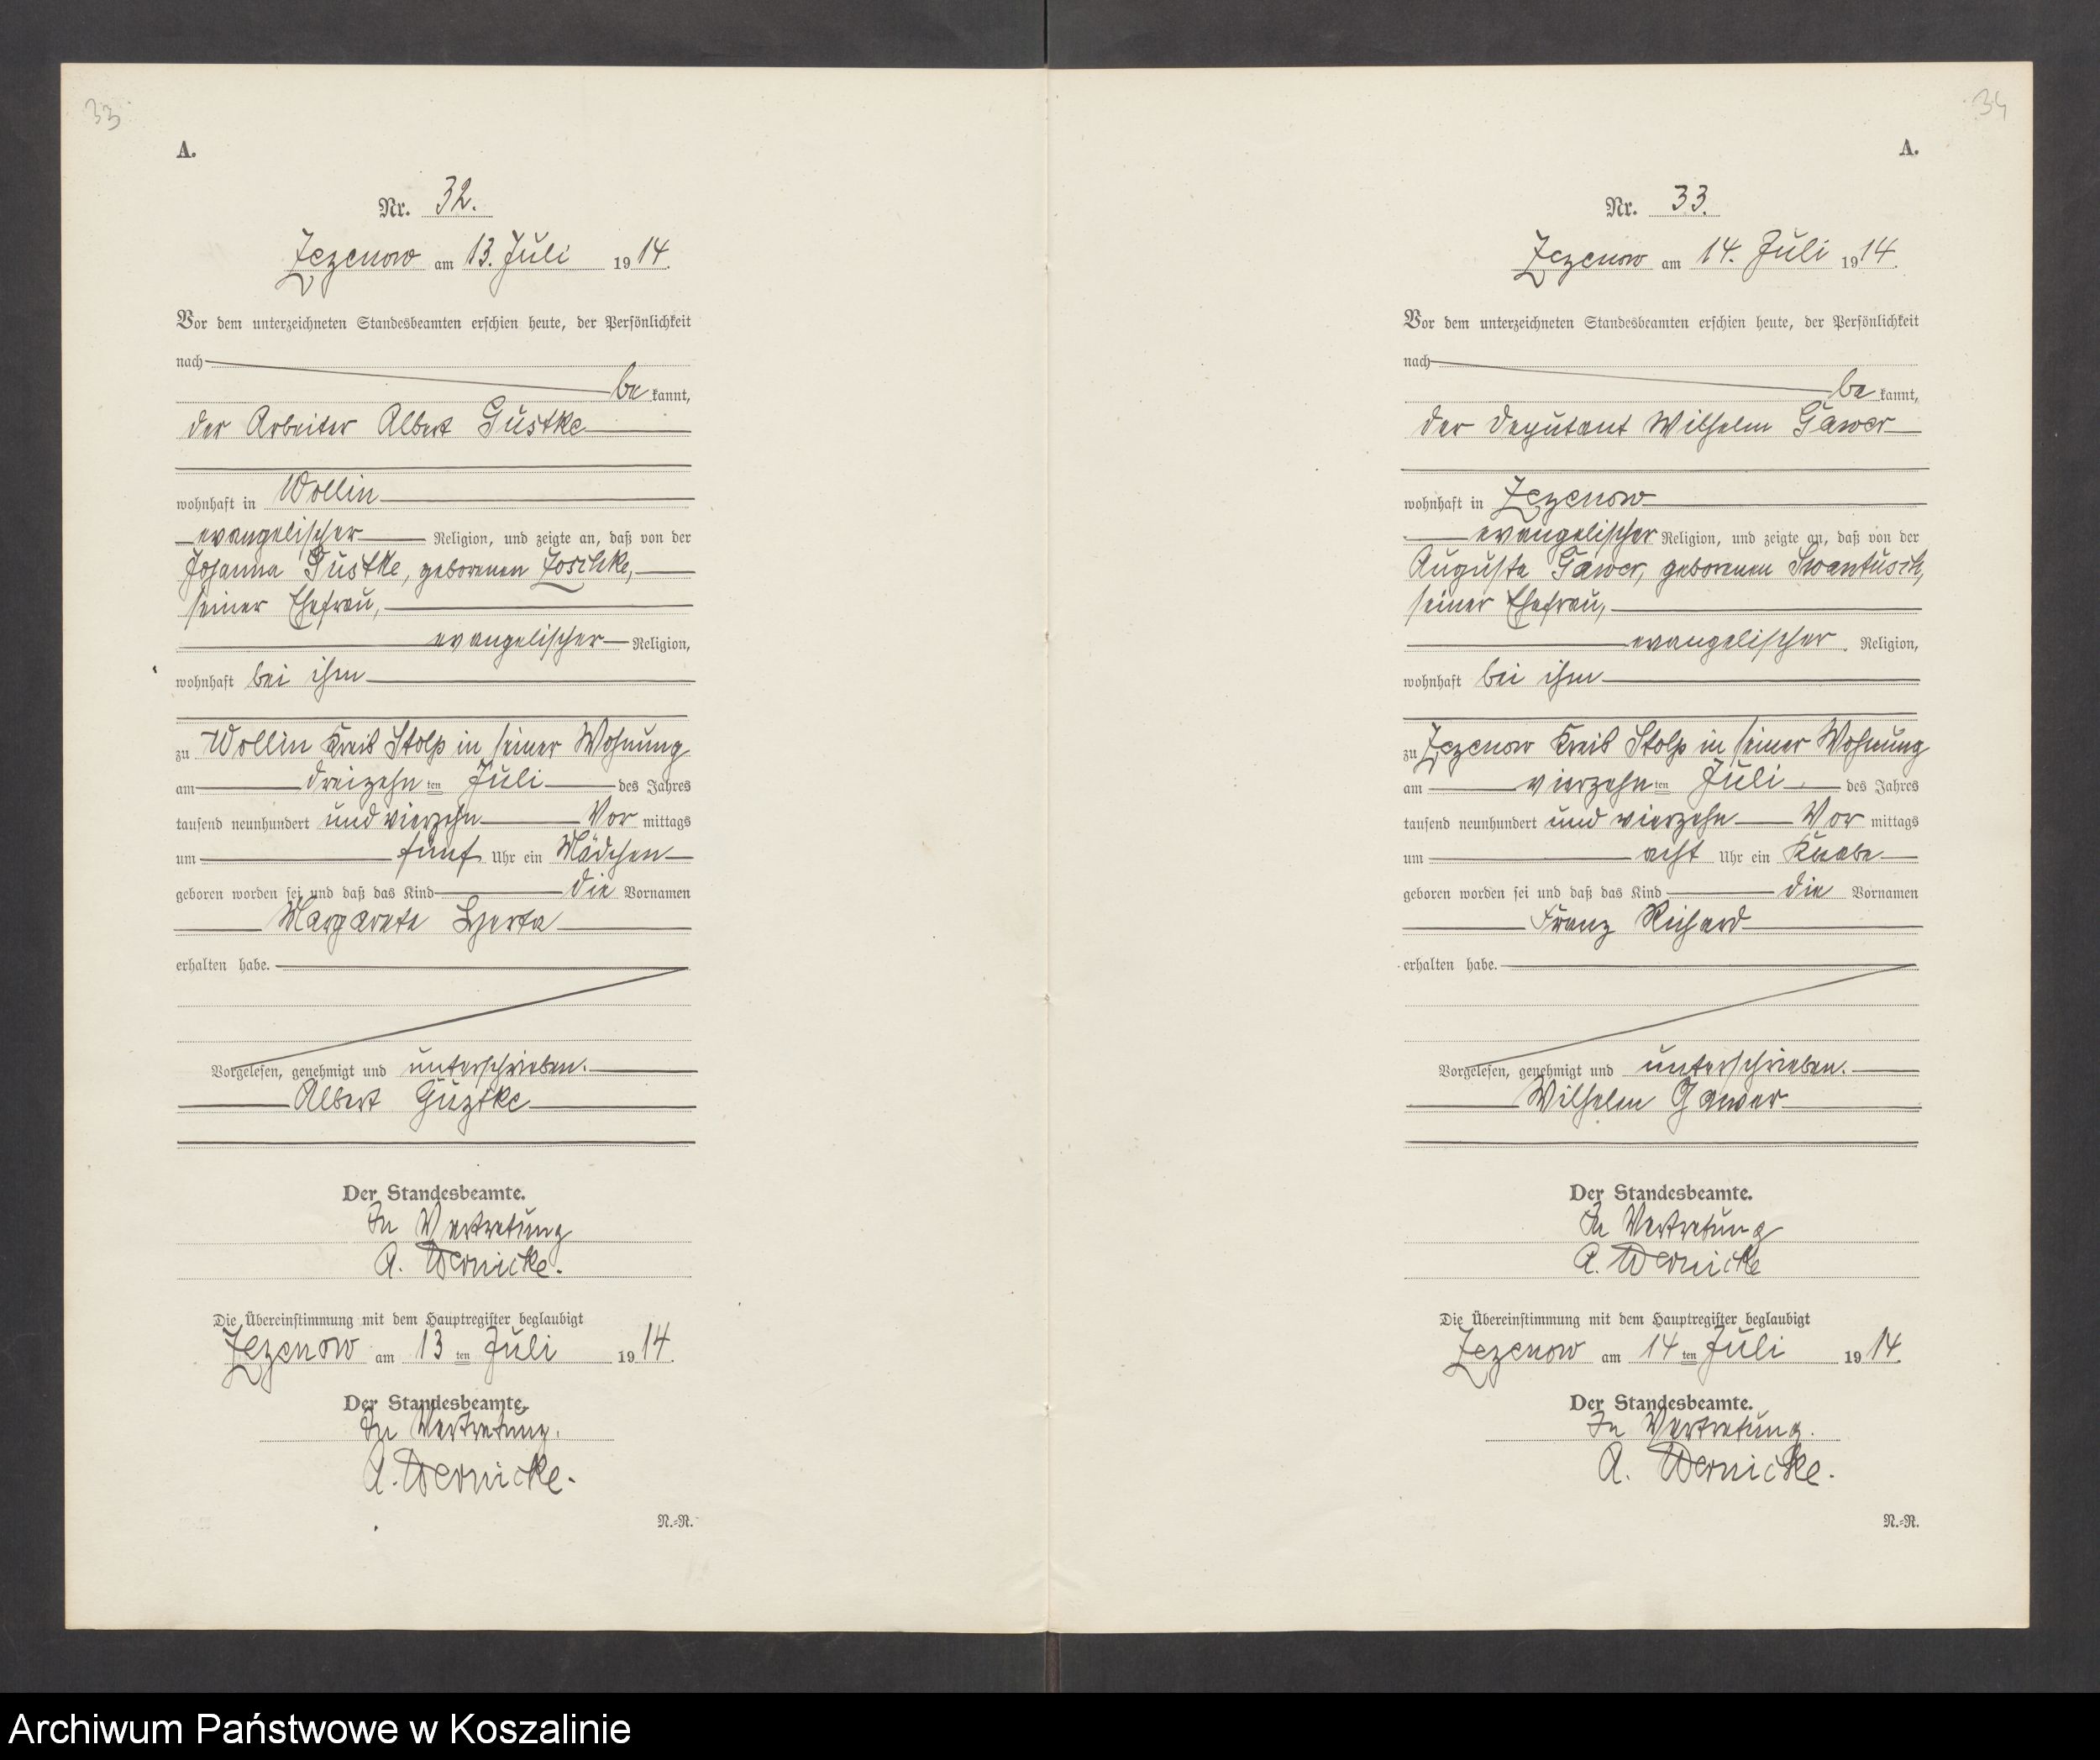 33
A.
Nr. 32.
Zezenow am 13. Juli 1914.
Vor dem unterzeichneten Standesbeamten erschien heute, der Persönlichkeit
nach
be kannt,
der Arbeiter Albert Gustke
wohnhaft in Wollin
evangelischer Religion, und zeigte an, daß von der
Johanna Gustke, geborenen Zoschke,
seiner Ehefrau,
evangelischer Religion,
wohnhaft bei ihm
zu Wollin Kreis Stolp in seiner Wohnung
am dreizehn ten Juli des Jahres
tausend neunhundert und vierzehn Vor mittags
um fünf Uhr ein Mädchen
geboren worden sei und daß das Kind die Vornamen
Margarete Herta
erhalten habe.
Vorgelesen, genehmigt und unterschrieben.
Albert Guzke
Der Standesbeamte.
In Vertretung
A. Wernicke.
Die Übereinstimmung mit dem Hauptregister beglaubigt
Zezenow am 13 ten Juli 1914.
Der Standesbeamte.
In Vertretung.
A. Wernicke.
N.=R.
34
A.
Nr. 33.
Zezenow am 14. Juli 1914.
Vor dem unterzeichneten Standesbeamten erschien heute, der Persönlichkeit
nach
be kannt,
der Deputant Wilhelm Gawer
wohnhaft in Zezenow
evangelischer Religion, und zeigte an, daß von der
Auguste Gawer, geborenen Swantusch,
seiner Ehefrau,
evangelischer Religion,
wohnhaft bei ihm
zu Zezenow Kreis Stolp in seiner Wohnung
am vierzehn ten Juli des Jahres
tausend neunhundert und vierzehn Vor mittags
um acht Uhr ein Knabe
geboren worden sei und daß das Kind die Vornamen
Franz Richard
erhalten habe.
Vorgelesen, genehmigt und unterschrieben.
Wilhelm Gawer
Der Standesbeamte.
In Vertretung
A. Wernicke
Die Übereinstimmung mit dem Hauptregister beglaubigt
Zezenow am 14 ten Juli 1914.
Der Standesbeamte.
In Vertretung.
A. Wernicke.
N.=R.
Archiwum Państwowe w Koszalinie